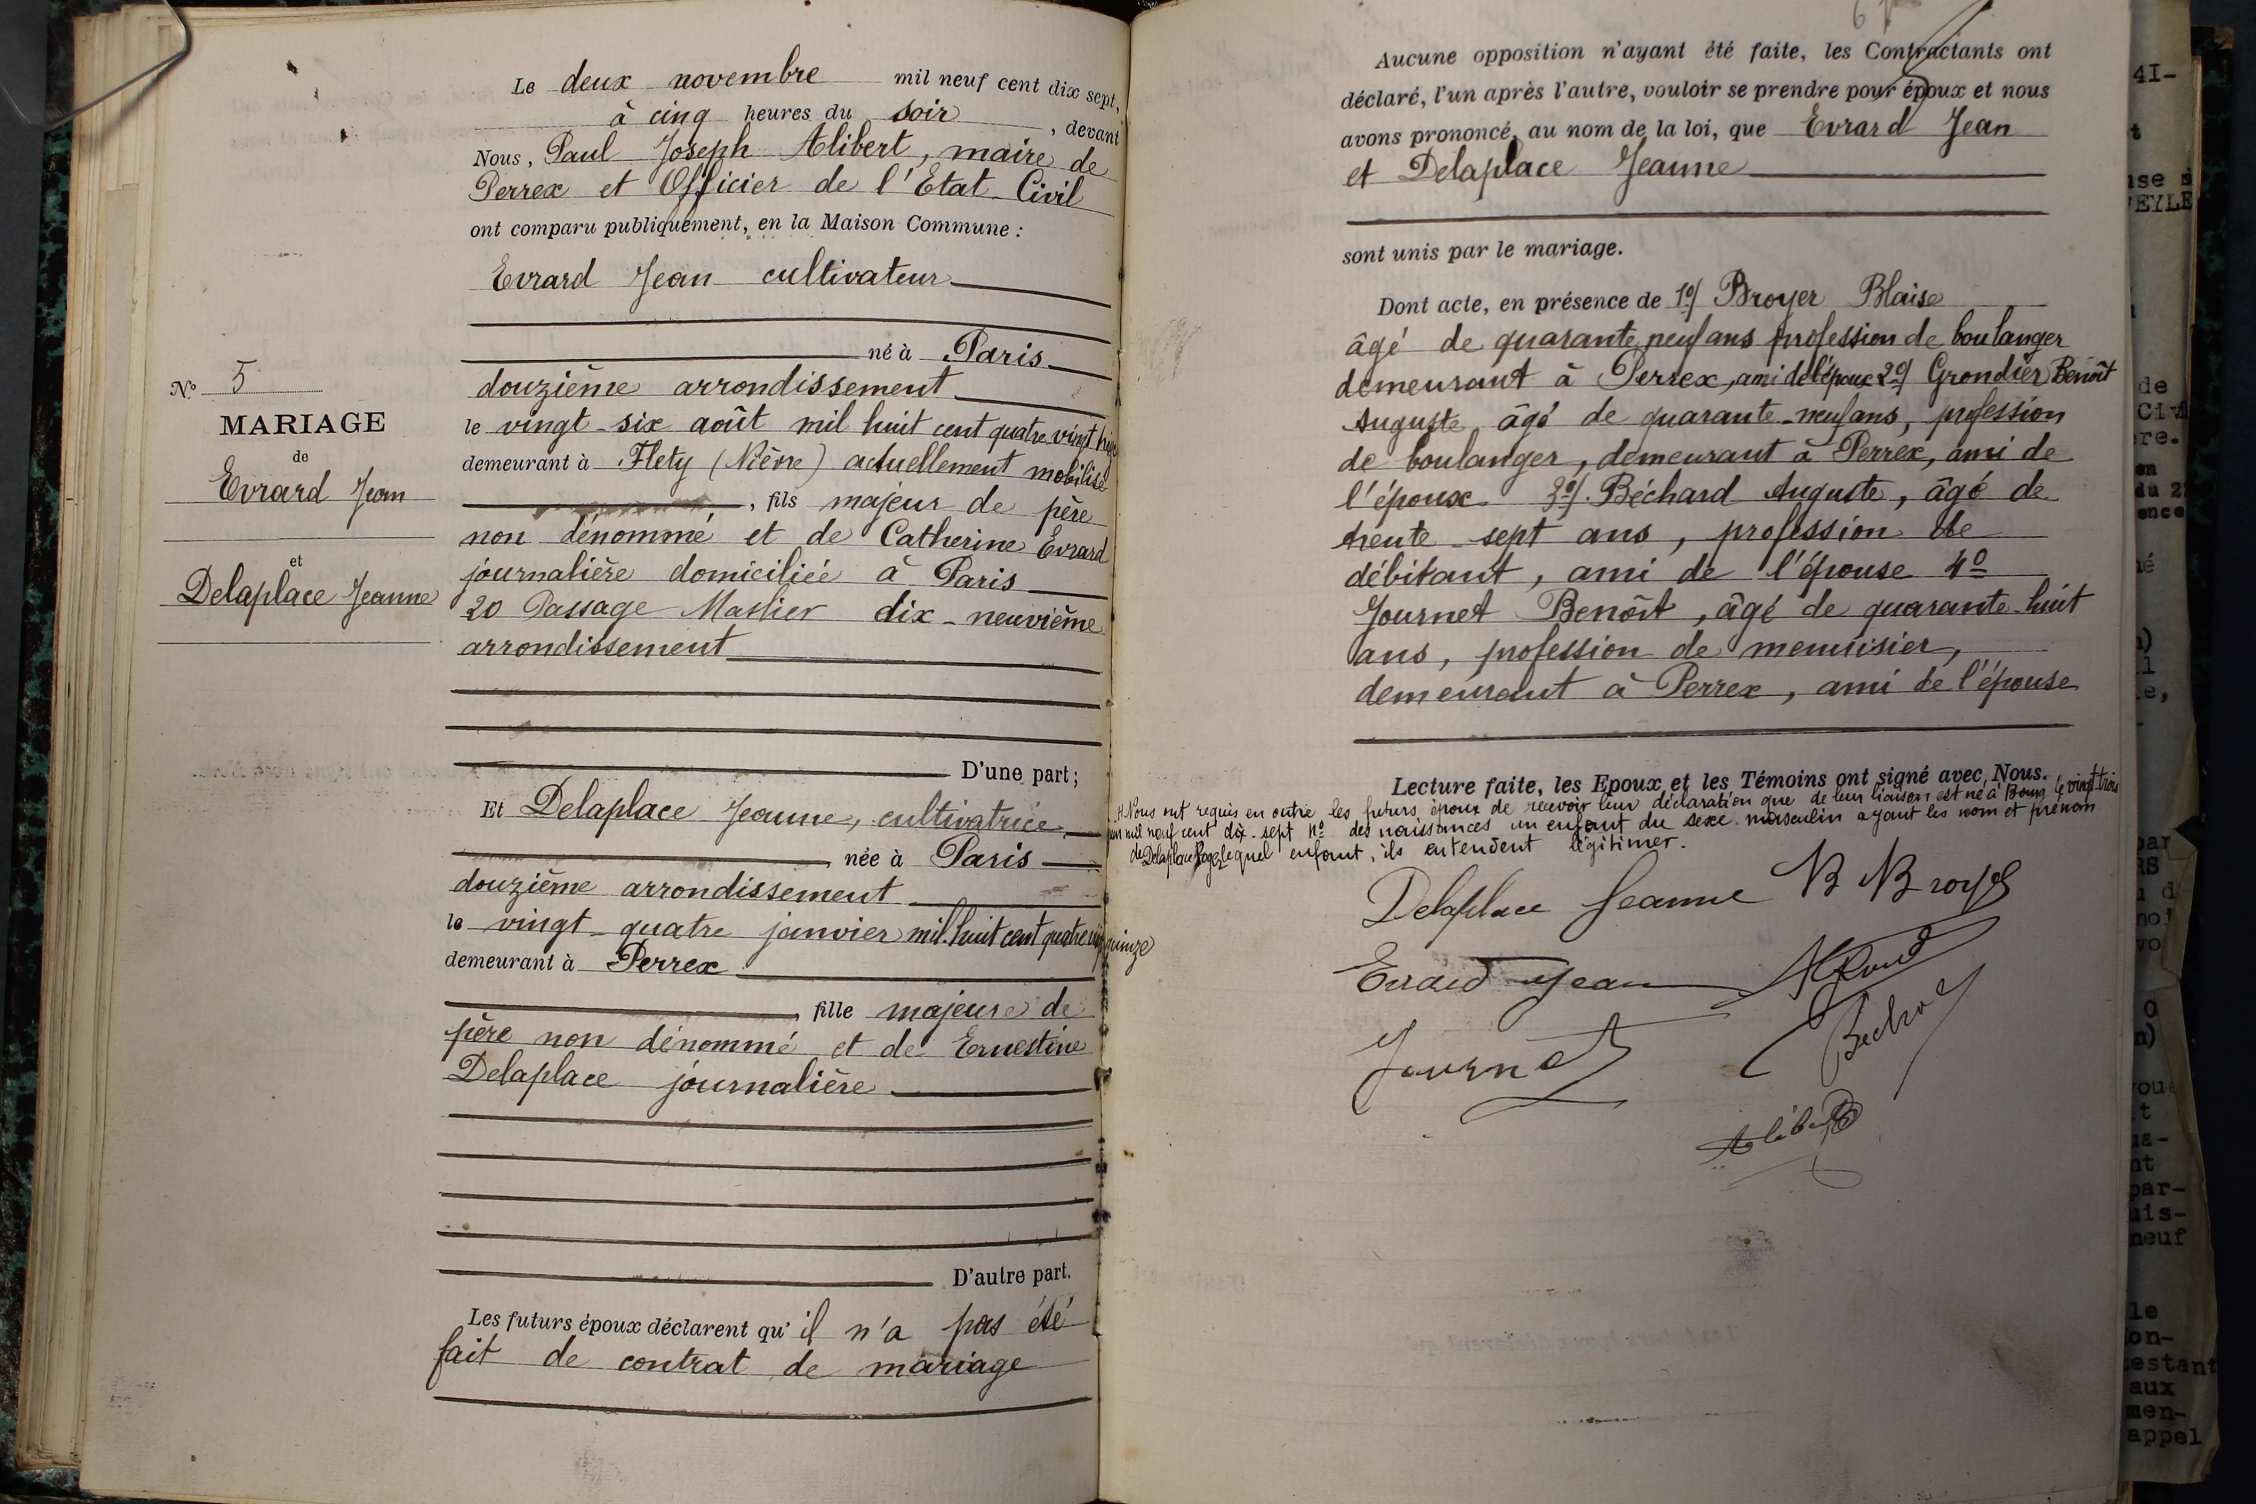 Le deux novembre mil neuf cent dix sept,
à cinq heures du soir, devant
Nous, Paul Joseph Alibert, maire de
Perrex et Officier de l'Etat-Civil
ont comparu publiquement, en la Maison Commune :
Evrard Jean cultivateur
né à Paris
douzième arrondissement
le vingt-six août mil huit cent quatre-vingt
demeurant à Flety (Nièvre) actuellement mobilisé
, fils majeur de père
non dénommé et de Catherine Evrard
journalière domiciliée à Paris
20 Passage dix-neuvième
arrondissement
D'une part;
Et Delaplace Jeanne, cultivatrice,
née à Paris
douzième arrondissement
le vingt-quatre janvier mil huit cent quatre vingt quinze
demeurant à Perrex
, fille majeure de
père non dénommé et de Ernestine
Delaplace journalière
D'autre part.
Les futurs époux déclarent qu'il n'a pas été
fait de contrat de mariage
N° 5
MARIAGE
de
Evrard Jean
et
Delaplace Jeanne
Aucune opposition n'ayant été faite, les Contractants ont
déclaré, l'un après l'autre, vouloir se prendre pour époux et nous
avons prononcé, au nom de la loi, que Evrard Jean
et Delaplace Jeanne
sont unis par le mariage.
Dont acte, en présence de 1°/ Broyer Blaise
âgé de quarante neuf ans profession de boulanger
demeurant à Perrex, ami de l'époux 2°/ Grondier Benoît
Auguste âgé de quarante-neuf ans, profession
de boulanger, demeurant à Perrex, ami de
l'époux 3°/. Béchard Auguste, âgé de
trente-sept ans, profession de
débitant, ami de l'épouse 4°
Journet Benoît, âgé de quarante-huit
ans, profession de menuisier,
demeurant à Perrex, ami de l'épouse
Lecture faite, les Epoux et les Témoins ont signé avec Nous.
Nous ont requis en outre les futurs époux de recevoir leur déclaration que de leur liaison est né à Bourg le vingt trois
mil neuf cent dix-sept n° des naissances un enfant du sexe masculin ayant les nom et prénom
de Delaplace Roger lequel enfant, ils entendent légitimer.
Delaplace Jeanne B Broyer
Evrard Jean
Journet
Alibert